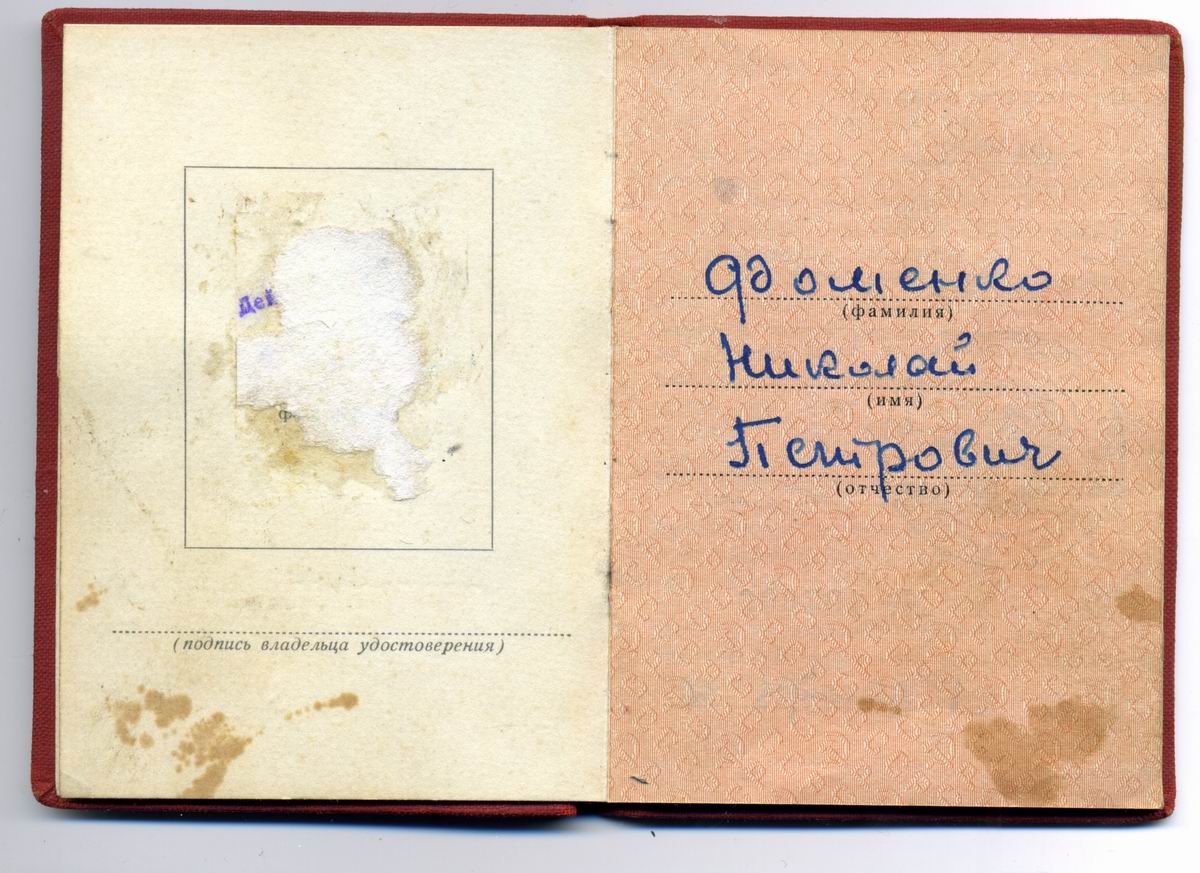 (подпись владельца удостоверения)
Фоменко
(фамилия)
Николай
(имя)
Петрович
(отчество)